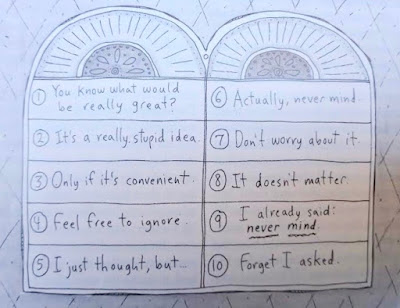 1 You know what would
be really great?
2 It's a really stupid idea.
3 Only if it's convenient.
4 Feel free to ignore.
5 I just thought, but...
6 Actually, never mind.
7 Don't worry about it.
8 It doesn't matter.
9 I already said:
never mind.
10 Forget I asked.